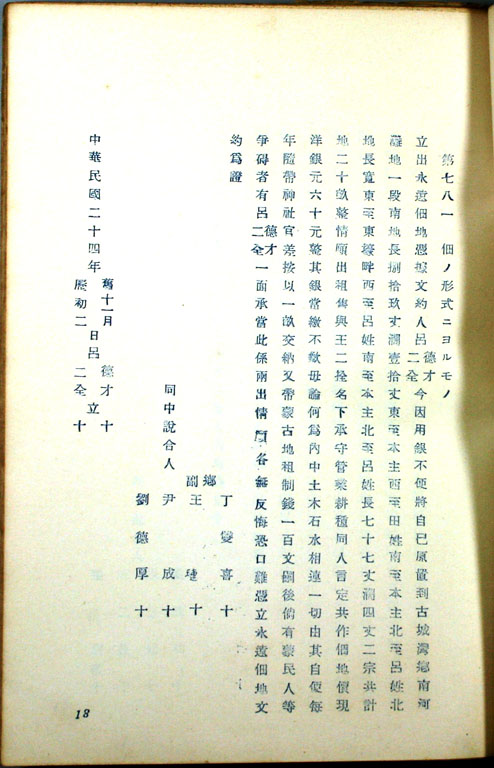 第七八一 佃ノ形式ニヨルモノ
立出永遠佃地憑據文約人呂德才二全今因用銀不便將自已原置到古城灣鄉南河
灘地一段南地長捌拾玖丈濶壹拾丈東至本主西至田姓南至本主北至呂姓北
地長寬東至東畔西至呂姓南至本主北至呂姓長七十七丈濶四丈二宗共計
地二十畝整情願出租與王二拴名下承守管業耕種同人言定共作佃地價現
洋銀元六十元整其銀當繳不欠毋論何爲內中土木石水相連一切由其自便每
年隨帶神社官差按以一畝交納又帶蒙古地租制錢一百文嗣後倘有蒙民人等
爭碍者有呂德才二全一面承當此係兩出情願各無反悔恐口難憑立永遠佃地文
約爲證
中華民國二十四年舊十一月曆初二日呂德才二全立十
同中說合人
鄉副
丁雙喜十
王十
尹成十
劉德厚十
13